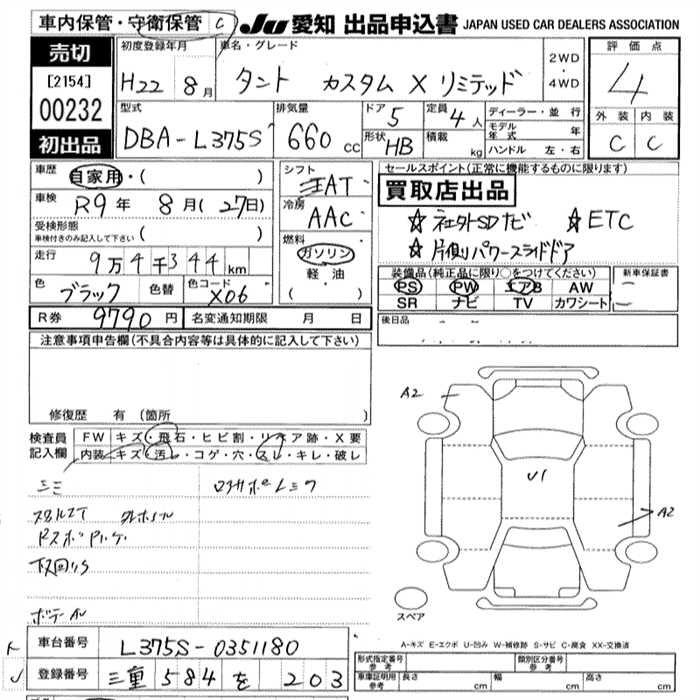 車内保管・守衛保管 C JU 愛知 出品申込書 JAPAN USED CAR DEALERS ASSOCIATION
売切
[2154]
00232
初出品
初度登録年月
H22 8月
車名・グレード
タント カスタム X リミテッド
2WD
・
4WD
評価点
4
外装 内装
C C
型式
DBA-L375S
排気量
660 cc
ドア 5
形状 HB
定員 4人
積載 kg
ディーラー・並行
モデル年式 年
ハンドル 左・右
車歴 自家用・( )
車検 R9年 8月(27日)
受検形態
車検付きのみ記入して下さい ( )
走行 9万4千344km
色 ブラック 色替 色コード X06
R券 9790円 名変通知期限 月 日
シフト
AT
冷房
AAC
燃料
ガソリン
軽油
( ・ )
セールスポイント(正常に機能するものに限ります)
買取店出品
☆社外SDナビ ☆ETC
☆片側パワースライドドア
装備品(純正品に限り○をつけてください)
PS PW エアB AW
SR ナビ TV カワシート
新車保証書
後日品
注意事項申告欄(不具合内容等は具体的に記入して下さい)
修復歴 有 (箇所
検査員
記入欄
FW キズ・飛石・ヒビ割・リペア跡・X要
内装 キズ・汚レ・コゲ・穴・スレ・キレ・破レ
下回りS
A2
U1
A2
スペア
A-キズ E-エクボ U-凹み W-補修跡 S-サビ C-腐食 XX-交換済
車台番号 L375S-0351180
登録番号 三重 584 を 203
型式指定番号 参考
類別区分番号 参考
車車証明用 参考 長さ cm 幅 cm 高さ cm